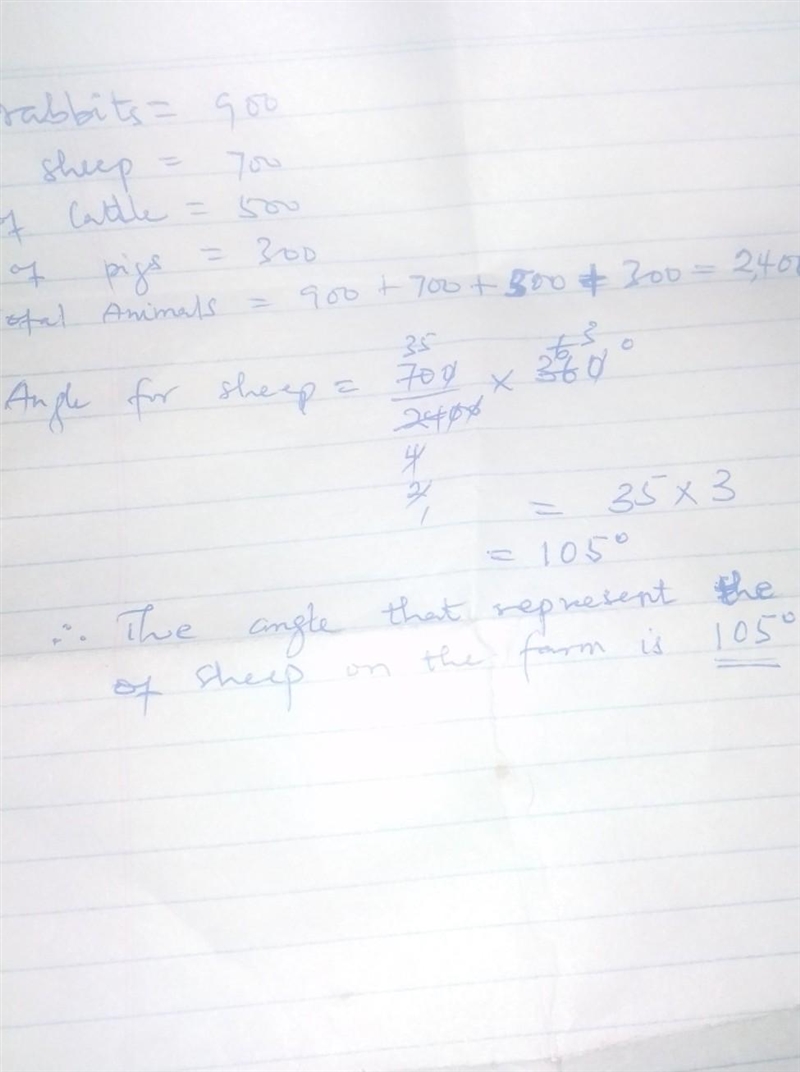 rabbits = 900
sheep = 700
of Cattle = 500
of pigs = 300
otal Animals = 900 + 700 + 500 + 300 = 2,400
35 6 3
Angle for sheep = 700/2400 × 360°
4
2
1
= 35 × 3
= 105°
∴ The angle that represent the
of sheep on the farm is 105°